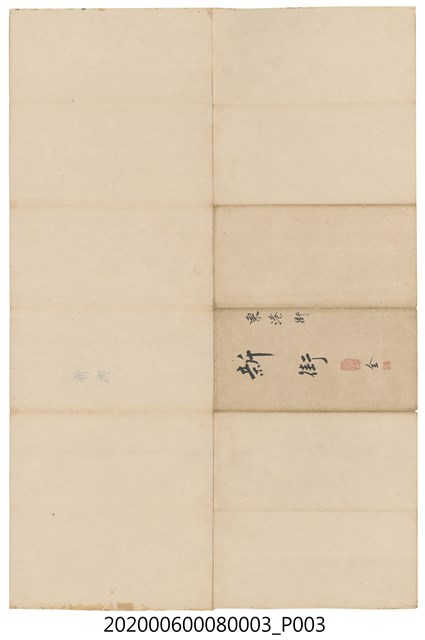 東港街
新街
全
新街
202000600080003_P003